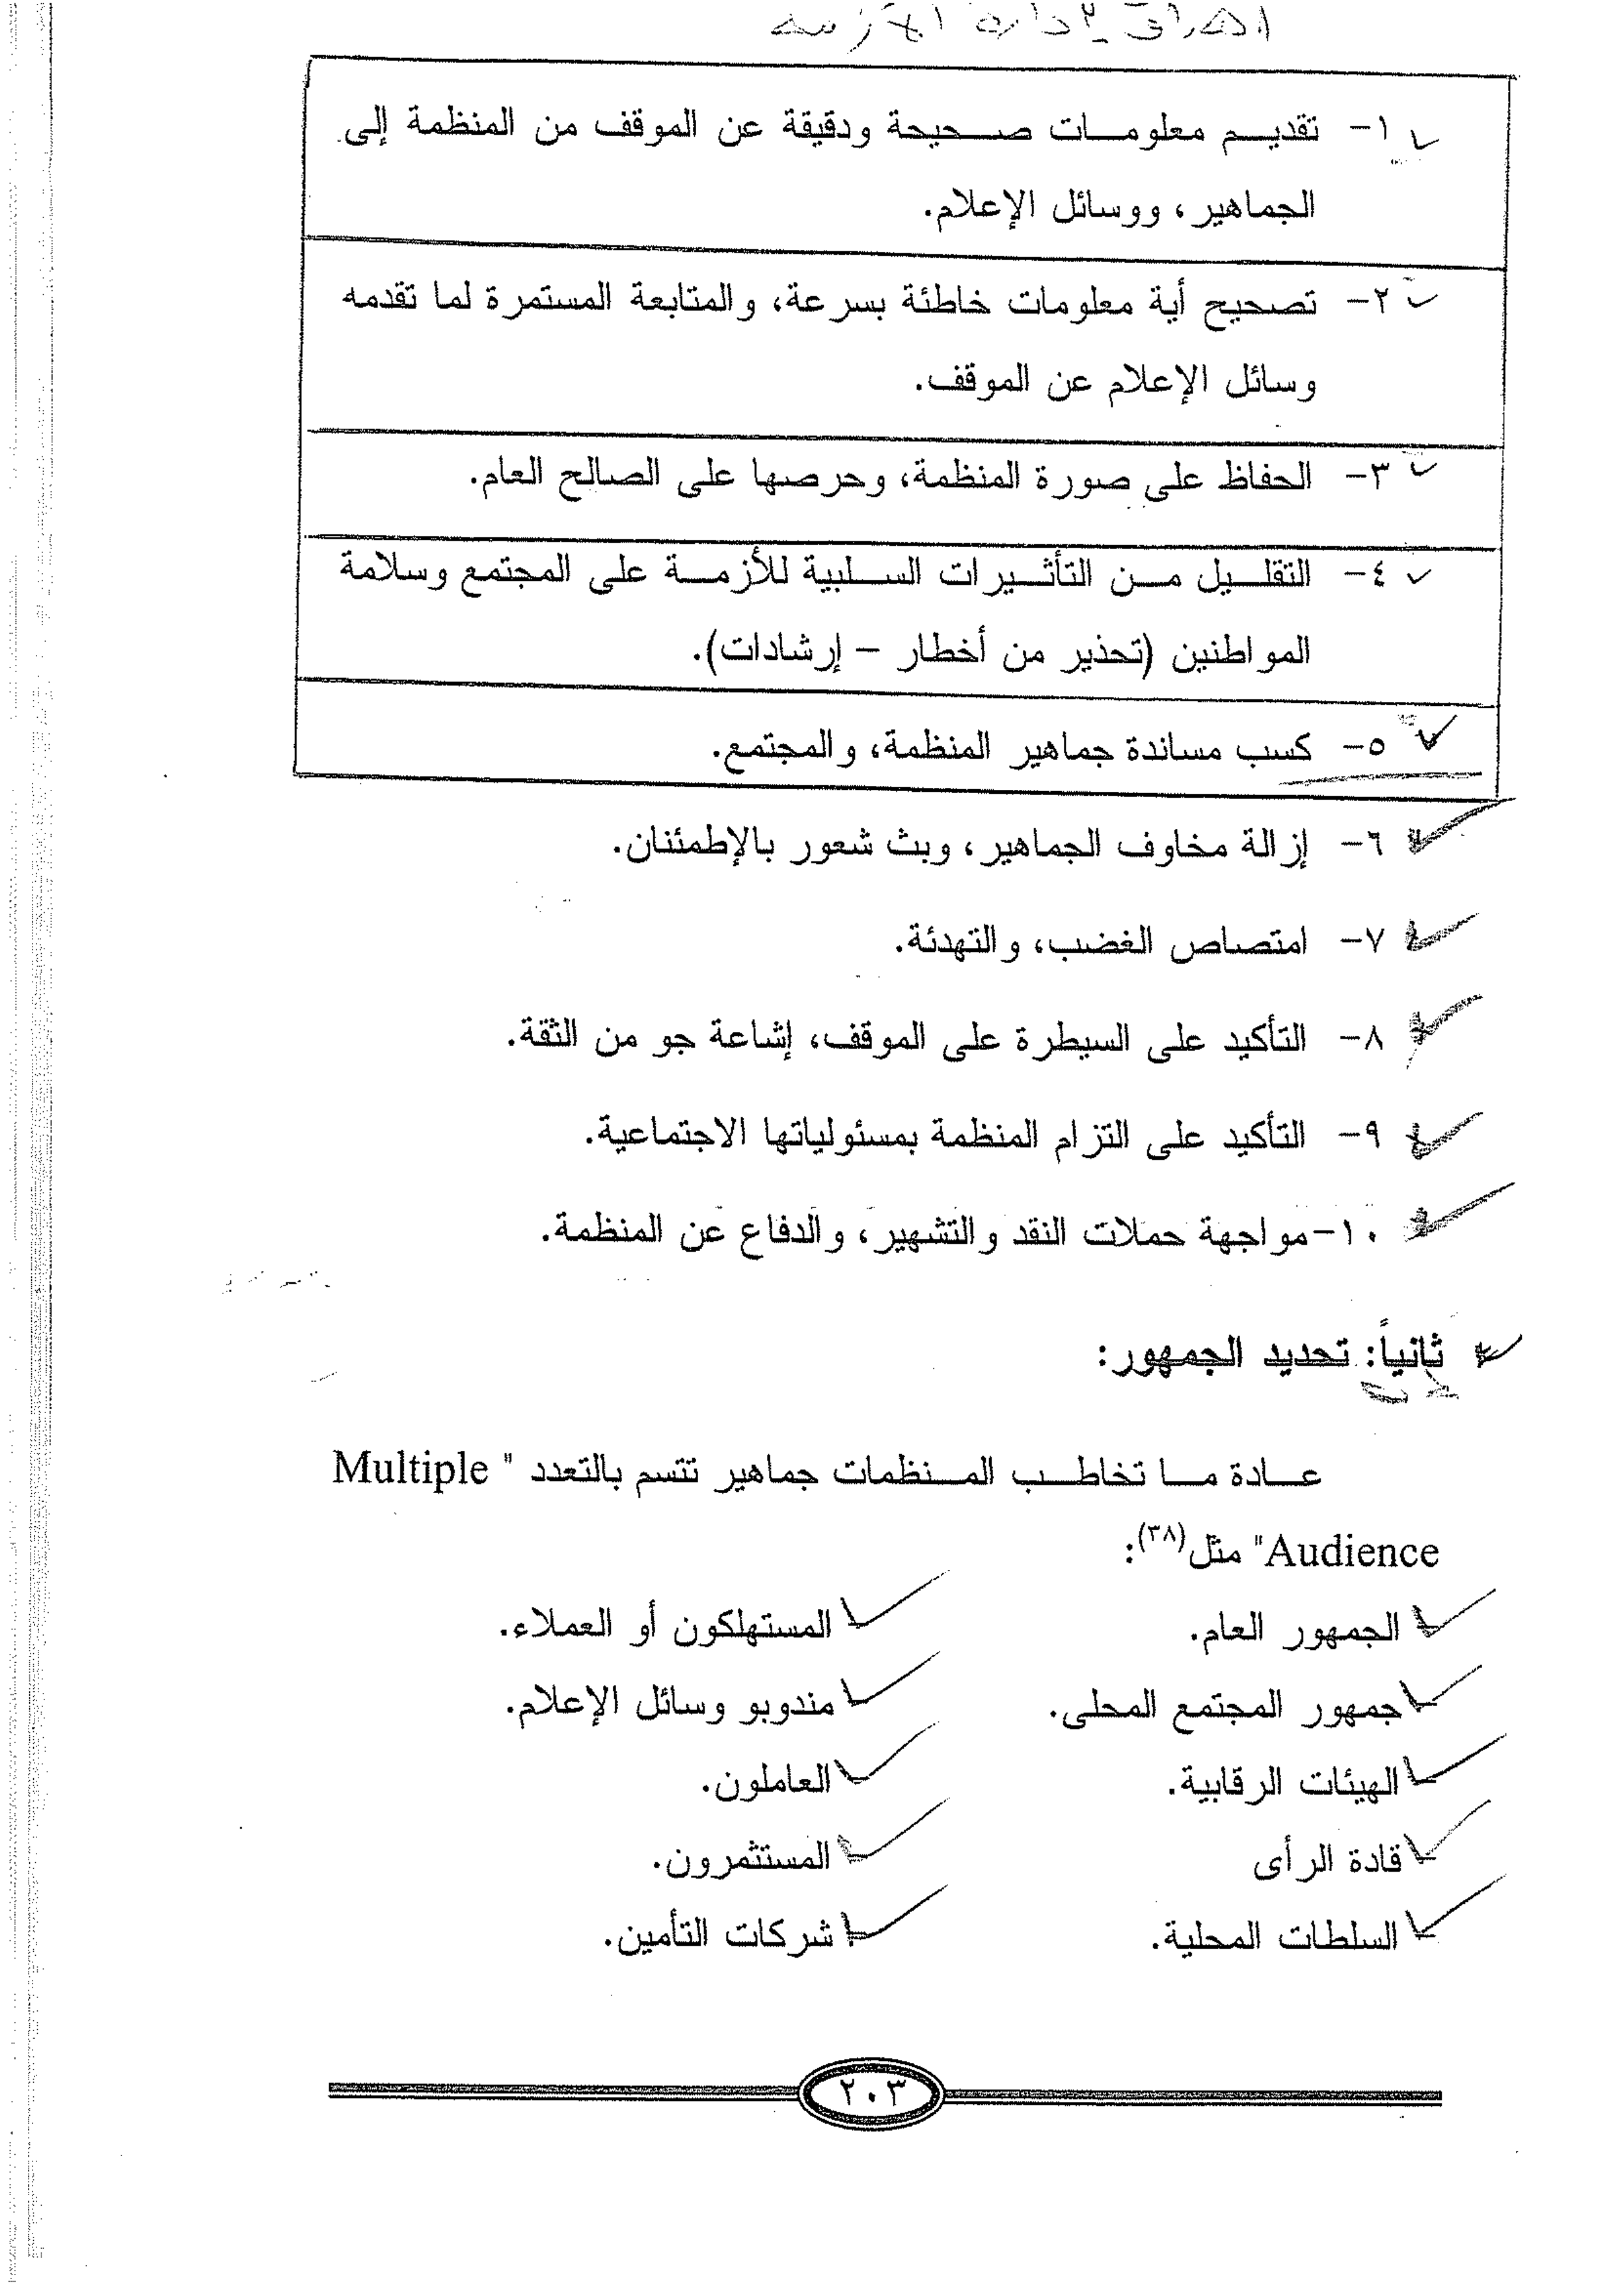 ١- تقديم معلومات صحيحة ودقيقة عن الموقف من المنظمة إلى
الجماهير، ووسائل الإعلام.
٢- تصحيح أية معلومات خاطئة بسرعة، والمتابعة المستمرة لما تقدمه
وسائل الإعلام عن الموقف.
٣- الحفاظ على صورة المنظمة، وحرصها على الصالح العام.
٤- التقليل من التأثيرات السلبية للأزمة على المجتمع وسلامة
المواطنين (تحذير من أخطار – إرشادات).
٥- كسب مساندة جماهير المنظمة، والمجتمع.
٦- إزالة مخاوف الجماهير، وبث شعور بالإطمئنان.
٧- امتصاص الغضب، والتهدئة.
٨- التأكيد على السيطرة على الموقف، إشاعة جو من الثقة.
٩- التأكيد على التزام المنظمة بمسئولياتها الاجتماعية.
١٠- مواجهة حملات النقد والتشهير، والدفاع عن المنظمة.
ثانياً: تحديد الجمهور:
عادة ما تخاطب المنظمات جماهير تتسم بالتعدد " Multiple
Audience" مثل(٣٨):
الجمهور العام. المستهلكون أو العملاء.
جمهور المجتمع المحلى. مندوبو وسائل الإعلام.
الهيئات الرقابية. العاملون.
قادة الرأى المستثمرون.
السلطات المحلية. شركات التأمين.
٢٠٣